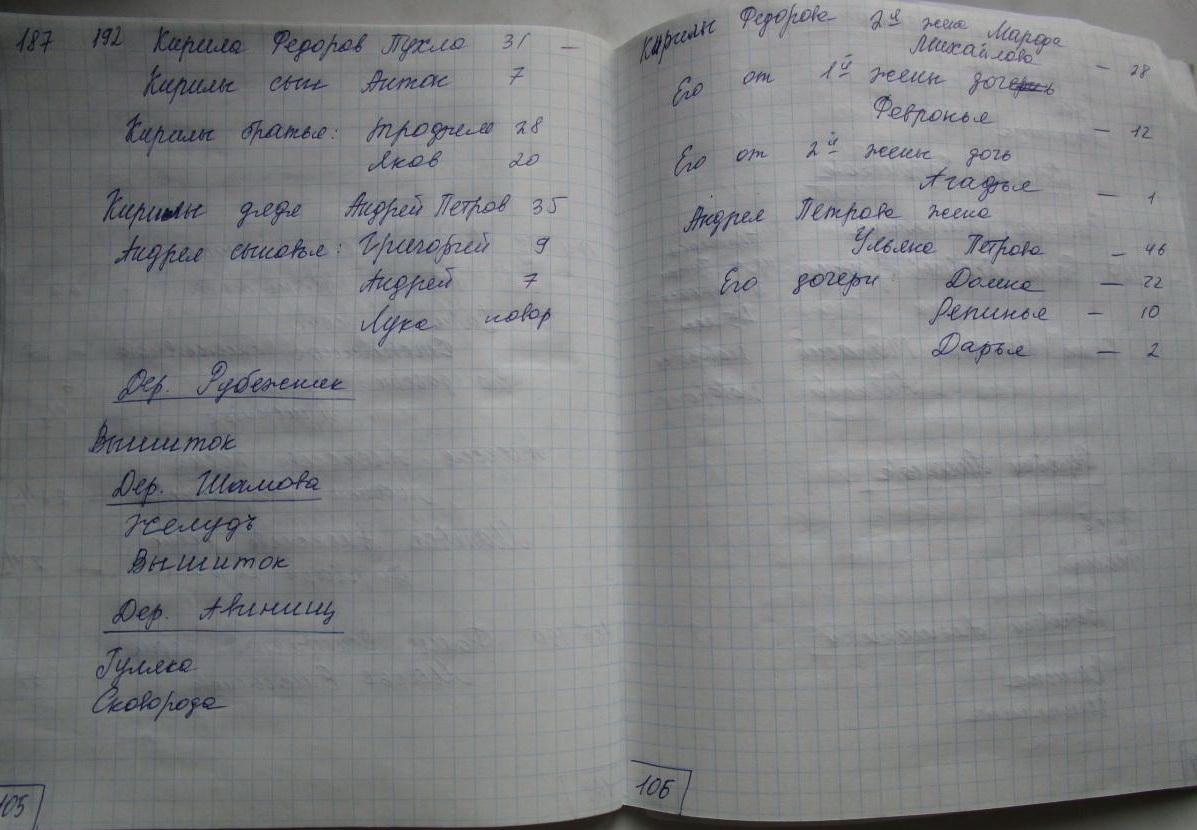 187 192 Кирила Федоров Пухло 31 —
Кирилы сын Антон 7
Кирилы братья: 28
Яков 20
Кирилы дядя Андрей Петров 35
Андрея сыновья: Григорий 9
Андрей 7
Лука новор
Дер. Рубежник
Вышиток
Дер. Шамова
Желудъ
Вышиток
Дер. Авиниц
Гуляка
Сковорода
105
Кирилы Федорова 2й жена Марфа
Михайлова — 28
Его от 1й жены доч
Февронья — 12
Его от 2й жены дочь
Агафья — 1
Андрея Петрова жена
Ульяна Петрова — 46
Его дочери Домна — 22
— 10
Дарья — 2
106